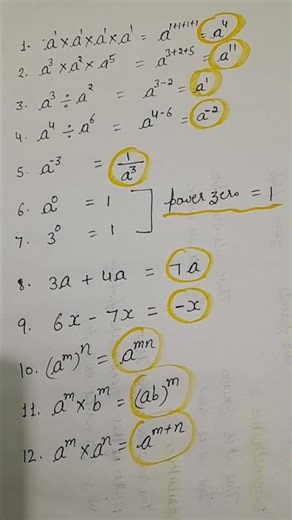 1. a¹ × a¹ × a¹ × a¹ = a¹⁺¹⁺¹⁺¹ = a⁴
2. a³ × a² × a⁵ = a³⁺²⁺⁵ = a¹¹
3. a³ ÷ a² = a³⁻² = a¹
4. a⁴ ÷ a⁶ = a⁴⁻⁶ = a⁻²
5. a⁻³ = 1/a³
6. a⁰ = 1
power zero = 1
7. 3⁰ = 1
8. 3a + 4a = 7a
9. 6x - 7x = -x
10. (aᵐ)ⁿ = aᵐⁿ
11. aᵐ × bᵐ = (ab)ᵐ
12. aᵐ × aⁿ = aᵐ⁺ⁿ